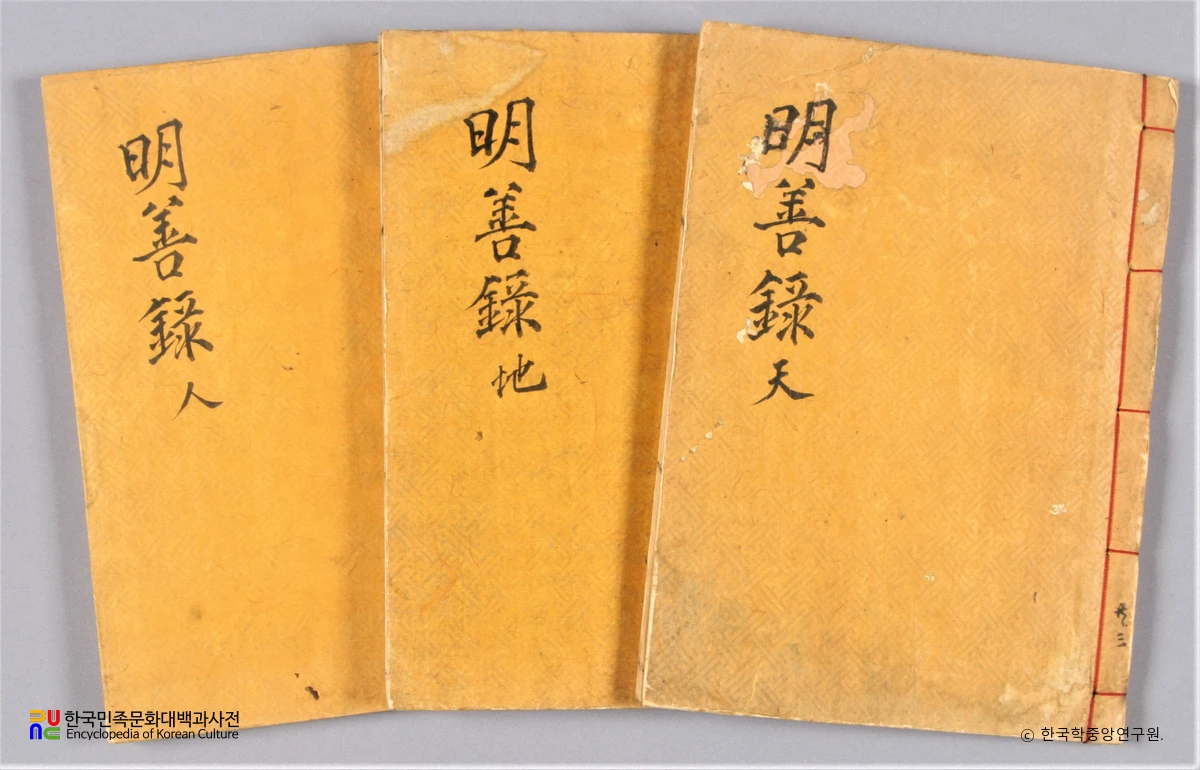 明善錄 天
明善錄 地
明善錄 人
한국민족문화대백과사전
Encyclopedia of Korean Culture
ⓒ 한국학중앙연구원.